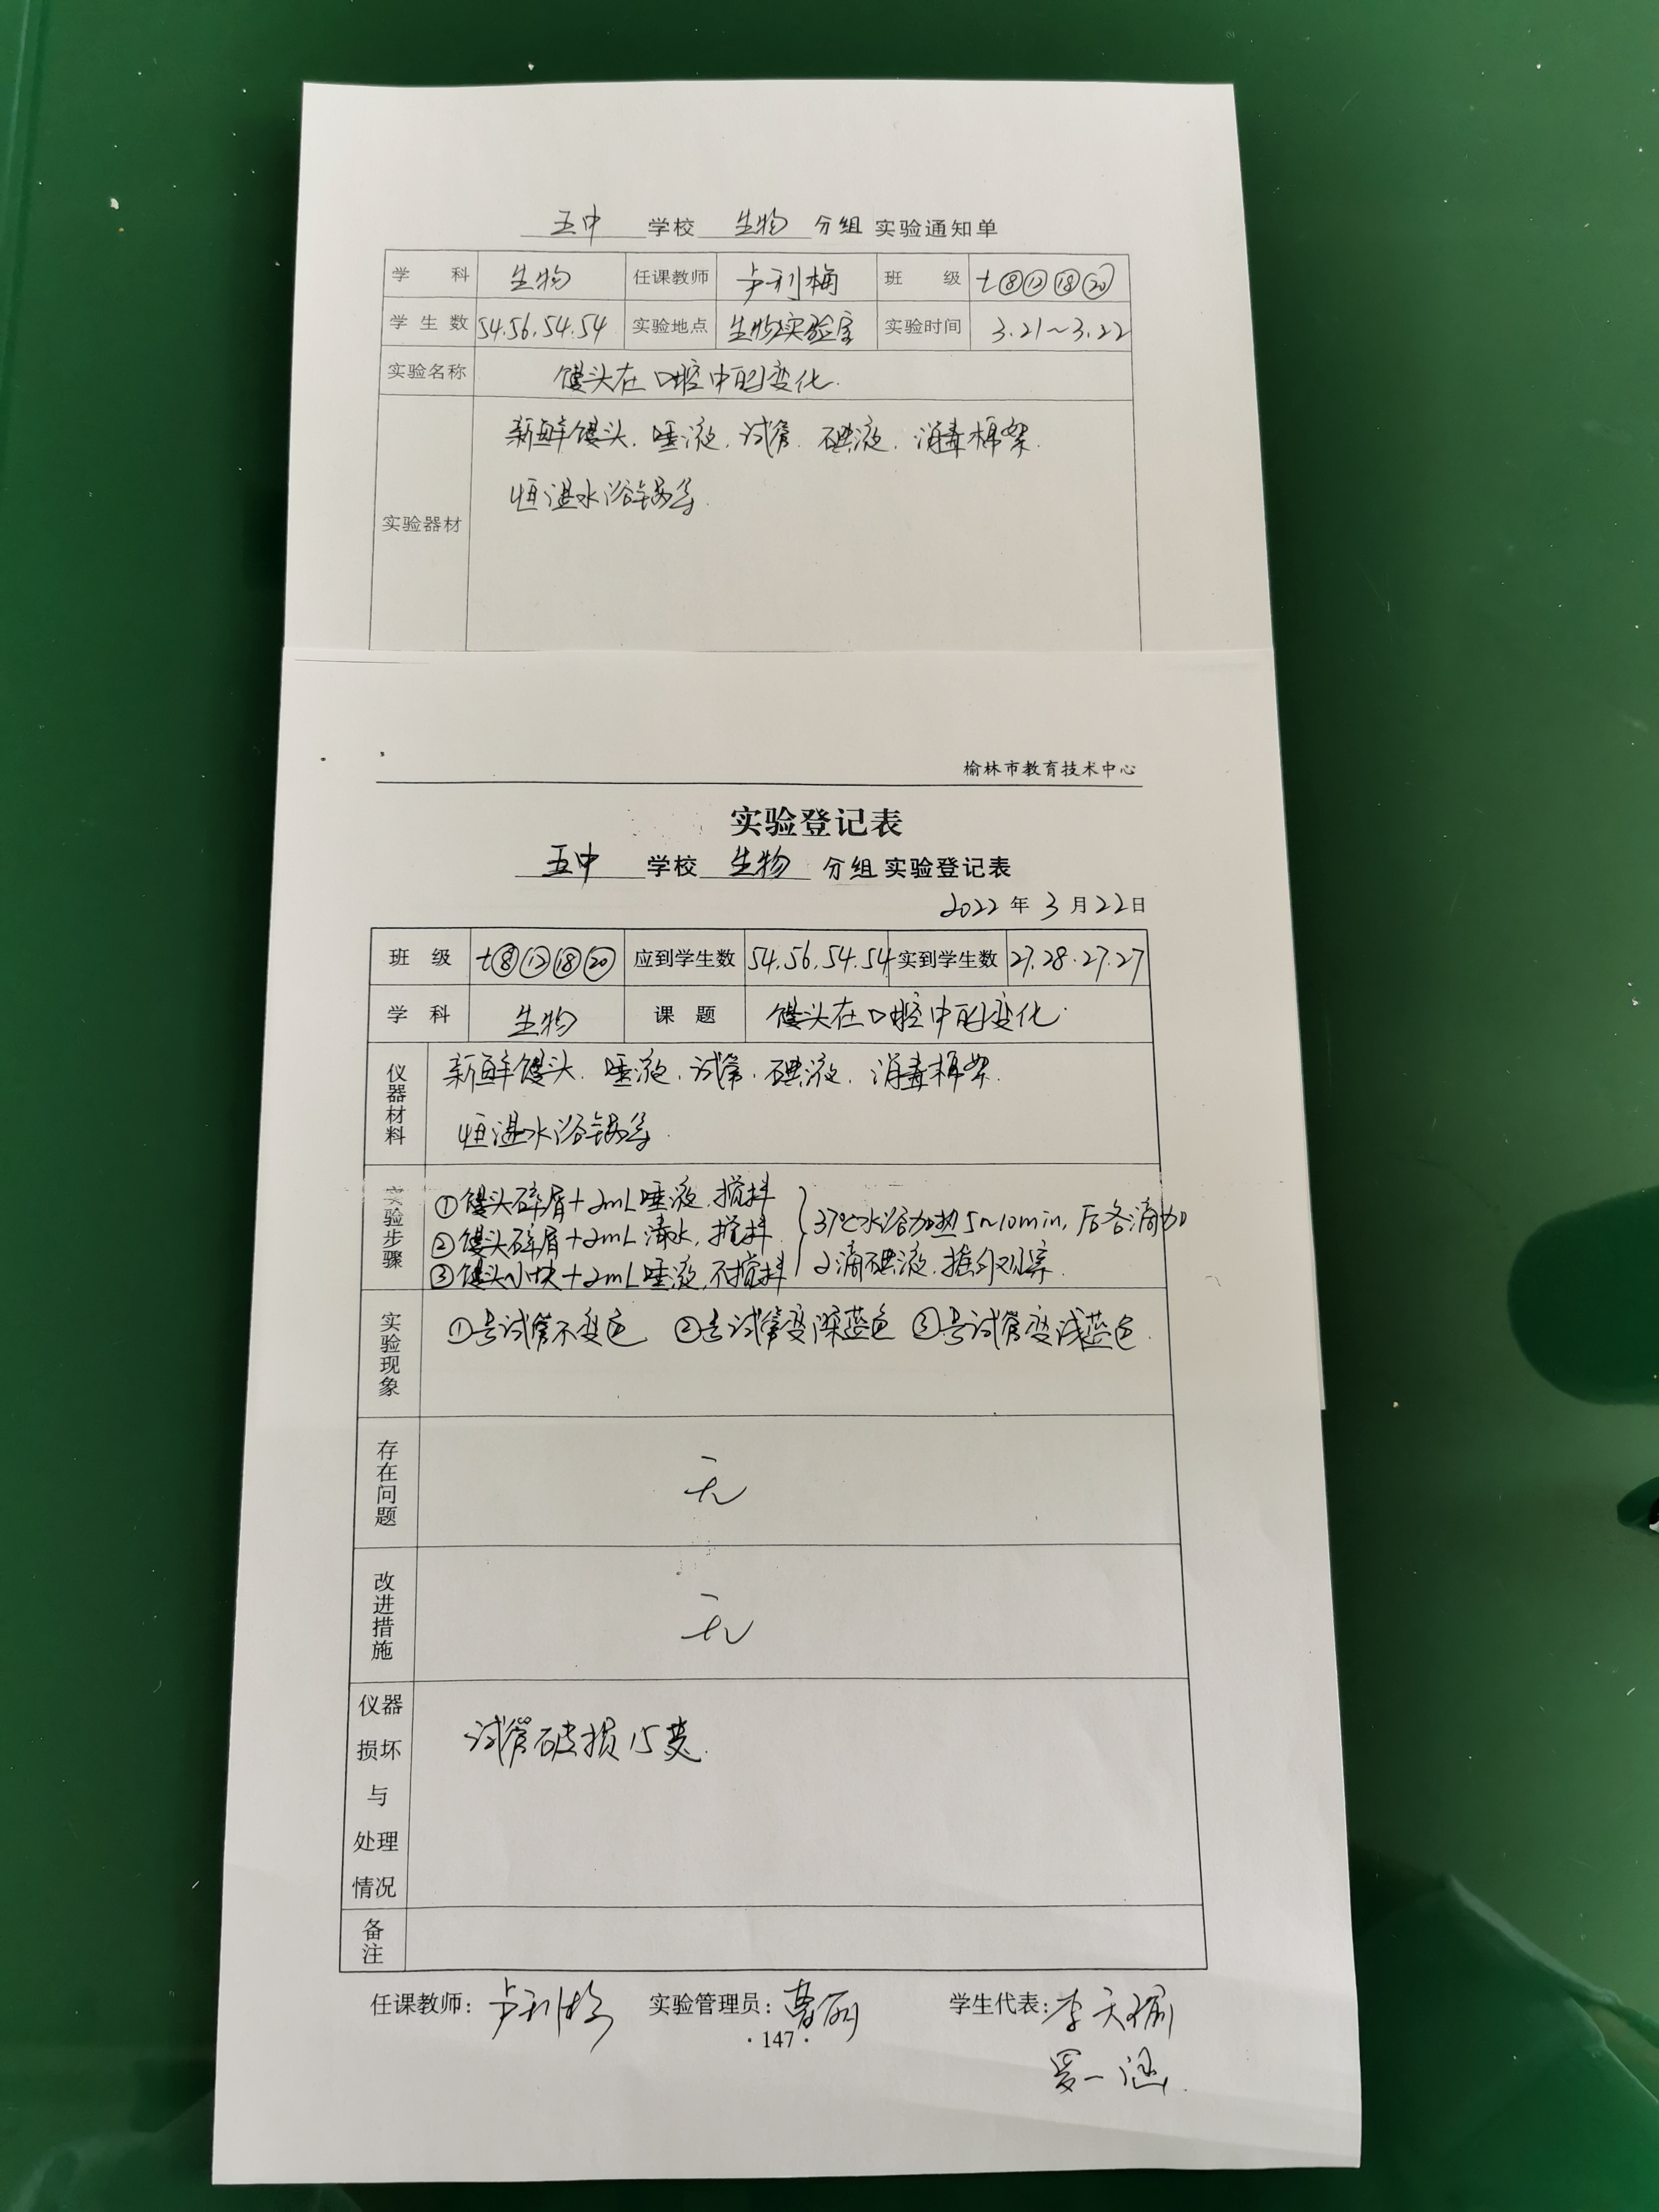 五中 学校 生物 分组 实验通知单
学 科 生物 任课教师 卢利梅 班 级 七⑧⑫⑱⑳
学生数 54.56.54.54 实验地点 生物实验室 实验时间 3.21~3.22
实验名称 馒头在口腔中的变化.
实验器材 新鲜馒头. 唾液. 试管. 碘液. 消毒棉絮.
恒温水浴锅等.
榆林市教育技术中心
实验登记表
五中 学校 生物 分组 实验登记表
2022 年 3 月 22 日
班 级 七⑧⑫⑱⑳ 应到学生数 54.56.54.54 实到学生数 27.28.27.27
学 科 生物 课 题 馒头在口腔中的变化.
仪器材料 新鲜馒头. 唾液. 试管. 碘液. 消毒棉絮.
恒温水浴锅等.
实验步骤 ①馒头碎屑+2mL唾液,搅拌
②馒头碎屑+2mL清水,搅拌
③馒头小块+2mL唾液,不搅拌
37℃水浴加热5~10min,后各滴加
2滴碘液.摇匀观察.
实验现象 ①号试管不变色 ②号试管变深蓝色 ③号试管变浅蓝色.
存在问题 无
改进措施 无
仪器损坏与处理情况 试管破损15支.
备注
任课教师: 卢利梅 实验管理员: 曹丽 学生代表: 李天
·147·
罗一涵.